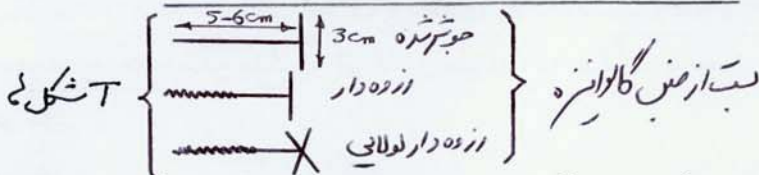 5-6cm
3cm جوش شده
رزوه دار
رزوه دار لولایی
T شکل
بست از جنس گالوانیزه